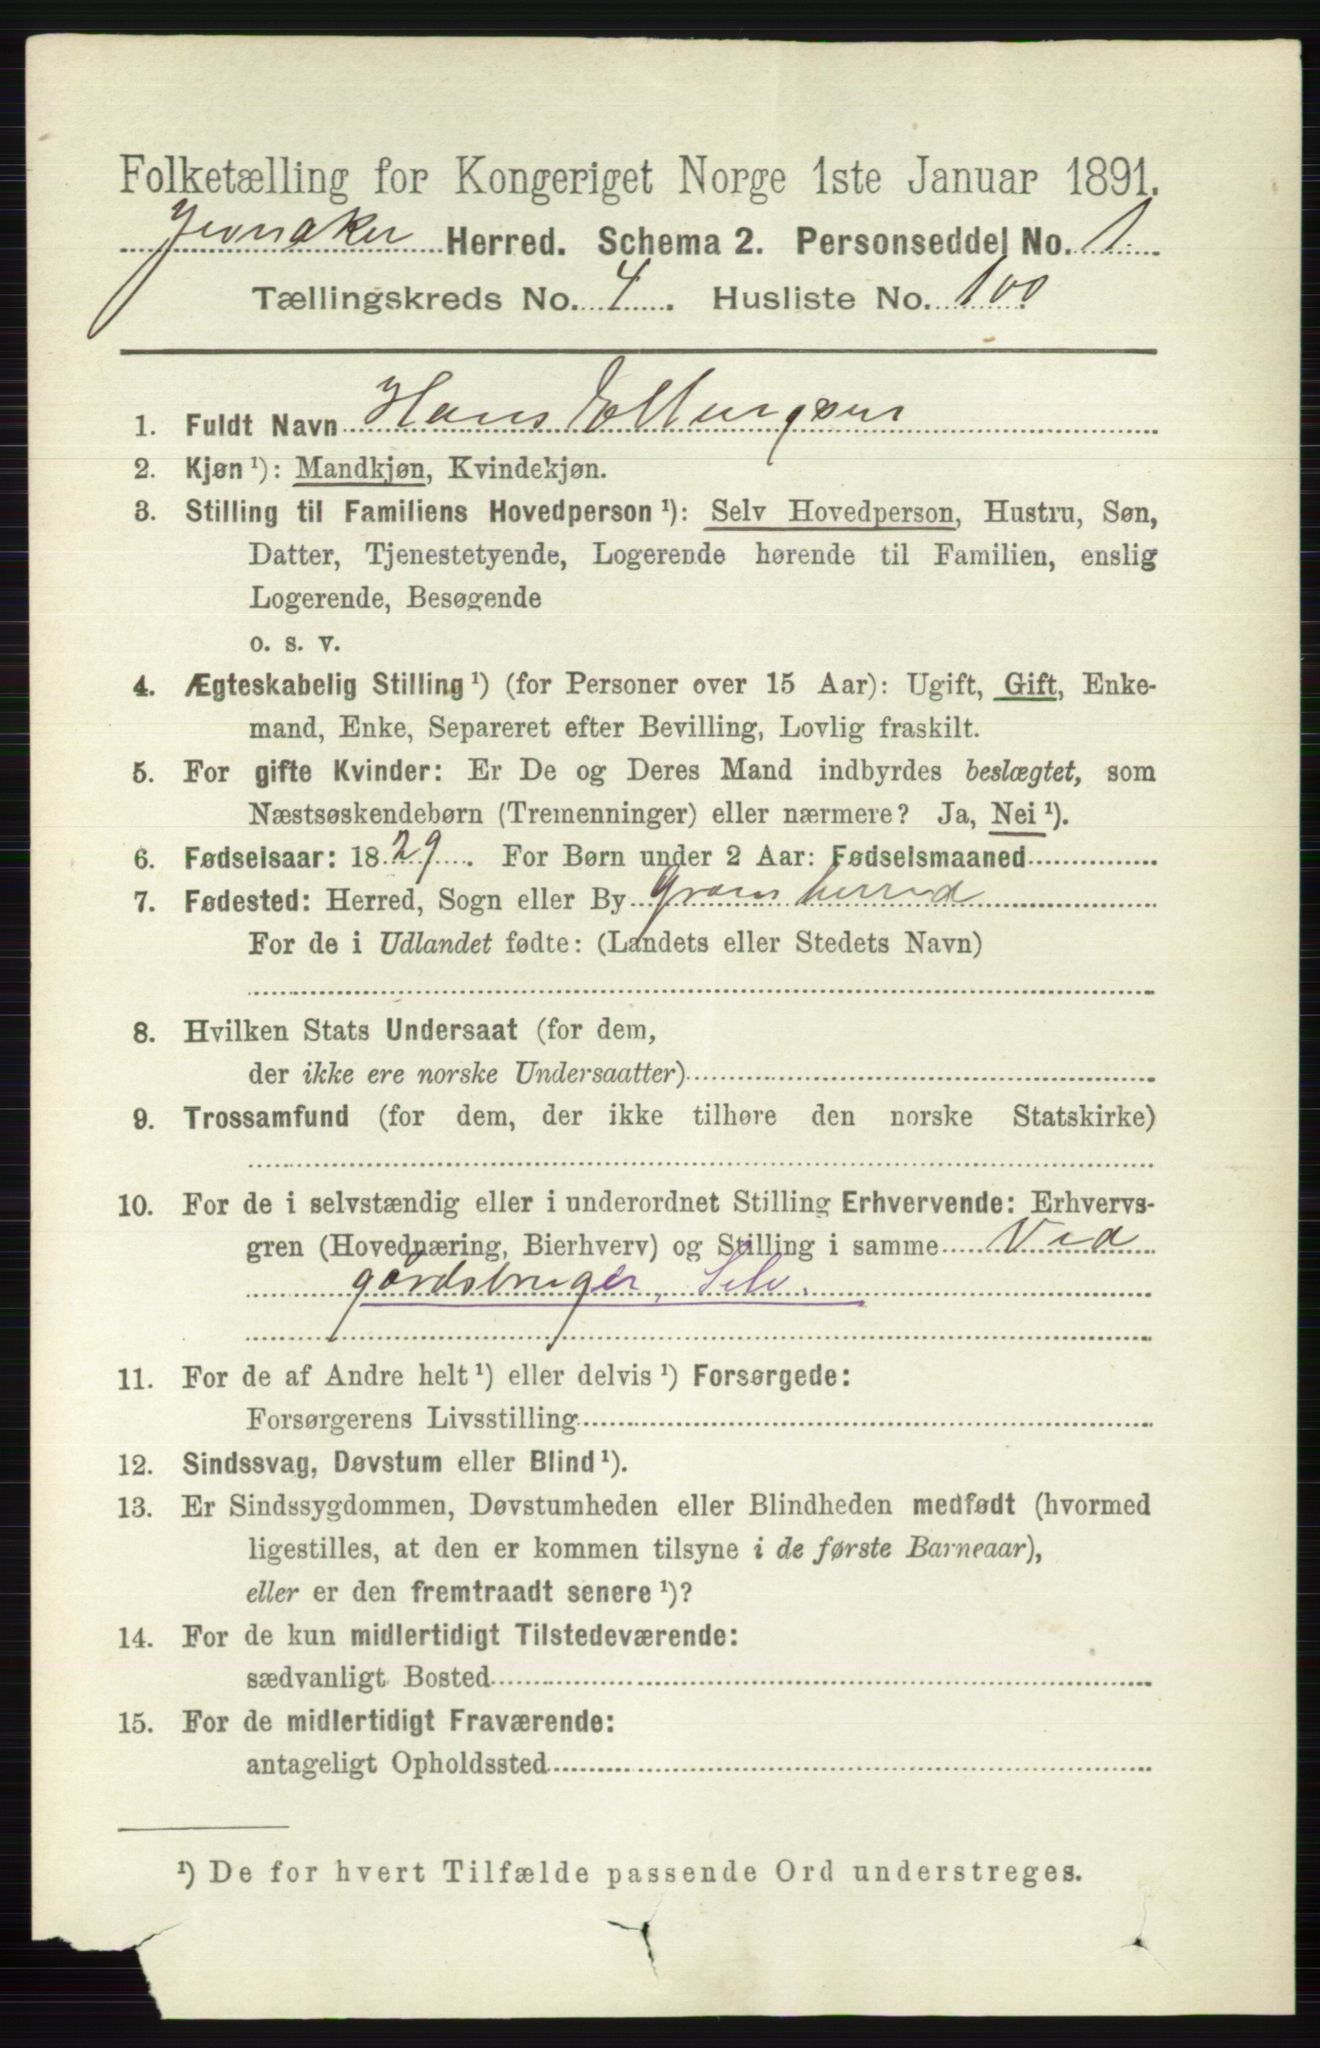 Folketælling for Kongeriget Norge 1ste Januar 1891.
Jevnaker Herred. Schema 2. Personseddel No. 1
Tællingskreds No. 4. Husliste No. 100
1. Fuldt Navn Hans
2. Kjøn ¹): Mandkjøn, Kvindekjøn.
3. Stilling til Familiens Hovedperson ¹): Selv Hovedperson, Hustru, Søn,
Datter, Tjenestetyende, Logerende hørende til Familien, enslig
Logerende, Besøgende
o. s. v.
4. Ægteskabelig Stilling ¹) (for Personer over 15 Aar): Ugift, Gift, Enke-
mand, Enke, Separeret efter Bevilling, Lovlig fraskilt.
5. For gifte Kvinder: Er De og Deres Mand indbyrdes beslægtet, som
Næstsøskendebørn (Tremenninger) eller nærmere? Ja, Nei ¹).
6. Fødselsaar: 1829. For Børn under 2 Aar: Fødselsmaaned
7. Fødested: Herred, Sogn eller By Grans herred
For de i Udlandet fødte: (Landets eller Stedets Navn)
8. Hvilken Stats Undersaat (for dem,
der ikke ere norske Undersaatter)
9. Trossamfund (for dem, der ikke tilhøre den norske Statskirke)
10. For de i selvstændig eller i underordnet Stilling Erhvervende: Erhvervs-
gren (Hovednæring, Bierhverv) og Stilling i samme Ved
gårdsbruger, Selv.
11. For de af Andre helt ¹) eller delvis ¹) Forsørgede:
Forsørgerens Livsstilling
12. Sindssvag, Døvstum eller Blind ¹).
13. Er Sindssygdommen, Døvstumheden eller Blindheden medfødt (hvormed
ligestilles, at den er kommen tilsyne i de første Barneaar),
eller er den fremtraadt senere ¹)?
14. For de kun midlertidigt Tilstedeværende:
sædvanligt Bosted
15. For de midlertidigt Fraværende:
antageligt Opholdssted
¹) De for hvert Tilfælde passende Ord understreges.